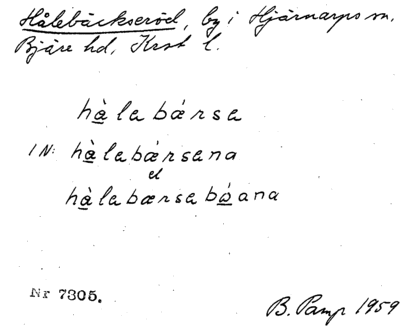 Hålebäckseröd, by i Hjärnarps sn.
Bjäre hd, Krst l.
hàlabǽrsa
IN: hàlabǽrsana
el
hàlabærsabóana
Nr 7305.
B. Pamp 1959